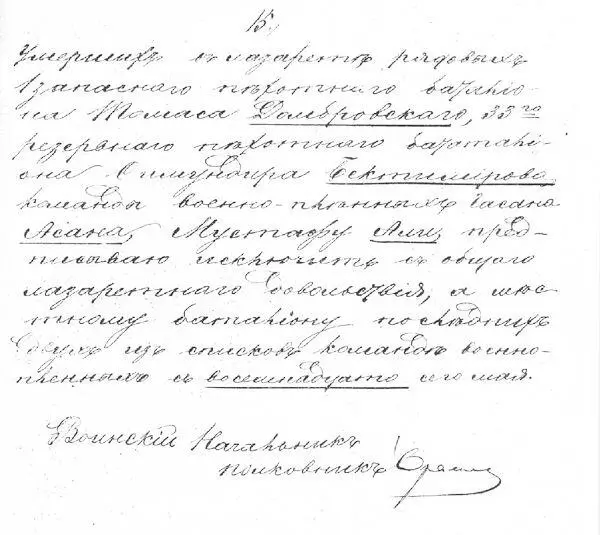 15.
Умершихъ въ лазаретѣ рядовыхъ
1 запаснаго пѣхотнаго баталіо-
на Томаса Домбровскаго, 33го
резервнаго пѣхотнаго баталі-
она Бектимирова,
команды военно-плѣнныхъ Гасана
Асана, Мустафу Али, пред-
писываю исключить съ общаго
лазаретнаго довольствія, а мѣс-
тному баталіону послѣднихъ
двухъ изъ списковъ команды военно-
плѣнныхъ съ восемнадцато сего мая.
Воинскій Начальникъ
полковникъ